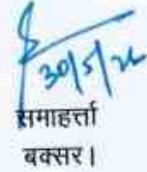 30/5/26
समाहर्त्ता
बक्सर।